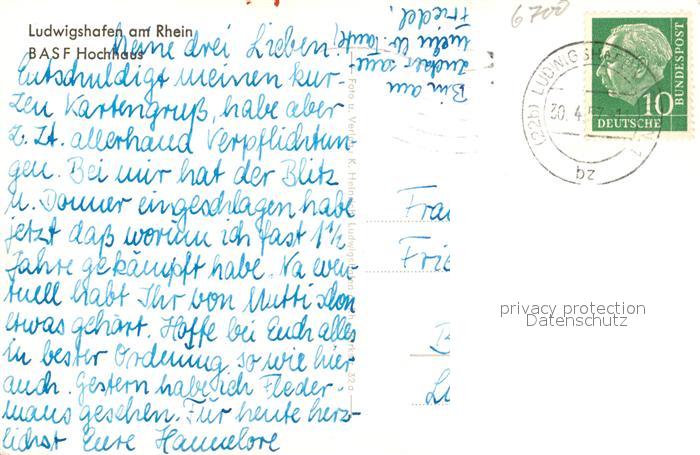 Ludwigshafen am Rhein
BASF Hochhaus
Meine drei Lieben.
Entschuldigt meinen kur-
zen Kartengruß, habe aber
z. Zt. allerhand Verpflichtun-
gen. Bei mir hat der Blitz
u. Donner eingeschlagen habe
jetzt daß worum ich fast 1½
Jahre gekämpft habe. Na even-
tuell habt Ihr von Mutti schon
etwas gehört. Hoffe bei Euch alles
in bester Ordnung, so wie hier
auch. Gestern habe ich Fleder-
maus gesehen. Für heute herz-
lichst Eure Hannelore
Bin am
Friedel,
6700
(22b) LUDWIGSHAFEN
30. 4. 57
bz
10
DEUTSCHE
BUNDESPOST
Frau
Frie
B
Lu
privacy protection
Datenschutz